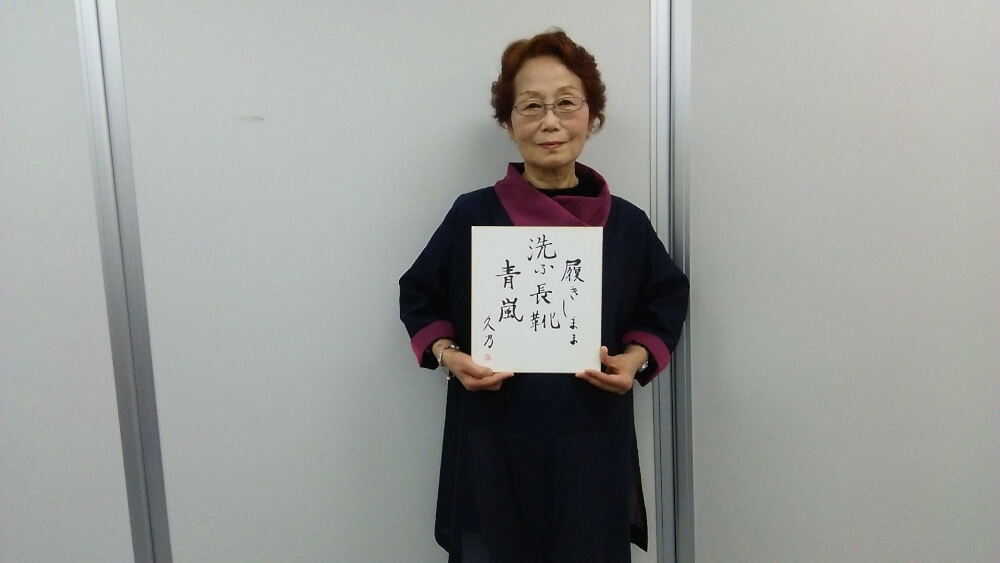 履きしまま
洗ふ長靴
青嵐
久乃